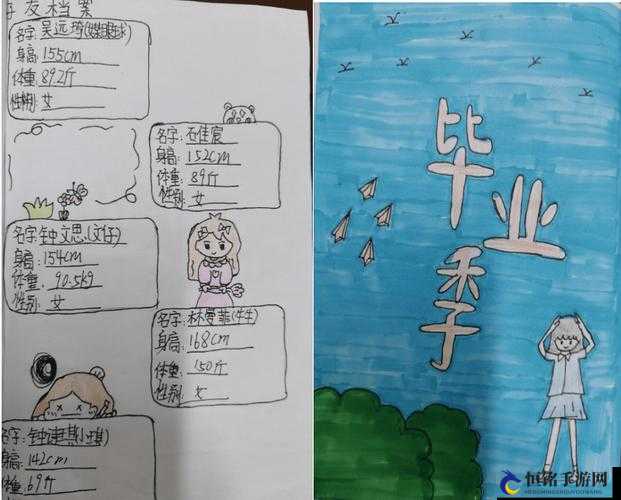 友档案
名字:吴远琦
身高:155cm
体重:89.2斤
性别:女
名字:石佳宸
身高:152cm
体重:89斤
性别:女
名字:钟文思(文仔)
身高:154cm
体重:90.5kg
性别:女
名字:林曼菲(牛牛)
身高:168cm
体重:150斤
性别:女
名字:钟建
身高:142cm
体重:69斤
毕业季
恒铭手游网